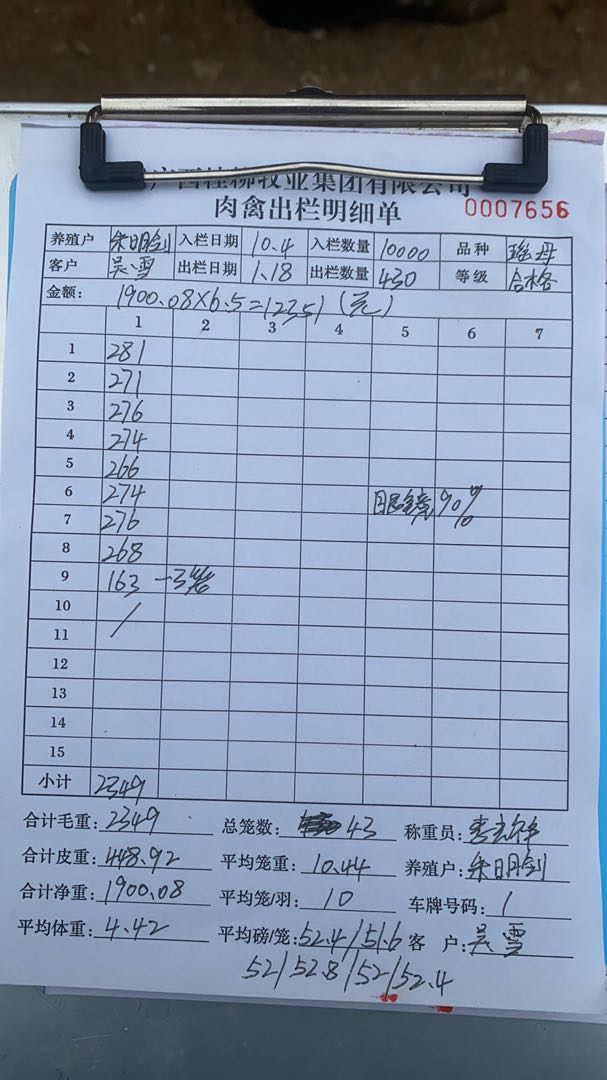 广西桂柳牧业集团有限公司
肉禽出栏明细单 0007656
养殖户 朱明剑 入栏日期 10.4 入栏数量 10000 品种 瑶母
客户 吴雪 出栏日期 1.18 出栏数量 430 等级 合格
金额: 1900.08×6.5=12351(元)
1 2 3 4 5 6 7
1 281
2 271
3 276
4 274
5 266
6 274 眼镜90%
7 276
8 268
9 163 -3笼
10 /
11
12
13
14
15
小计 2349
合计毛重: 2349 总笼数: 43 称重员:
合计皮重: 448.92 平均笼重: 10.44 养殖户: 朱明剑
合计净重: 1900.08 平均笼/羽: 10 车牌号码: 1
平均体重: 4.42 平均磅/笼: 52.4/51.6 客 户: 吴雪
52/52.8/52/52.4